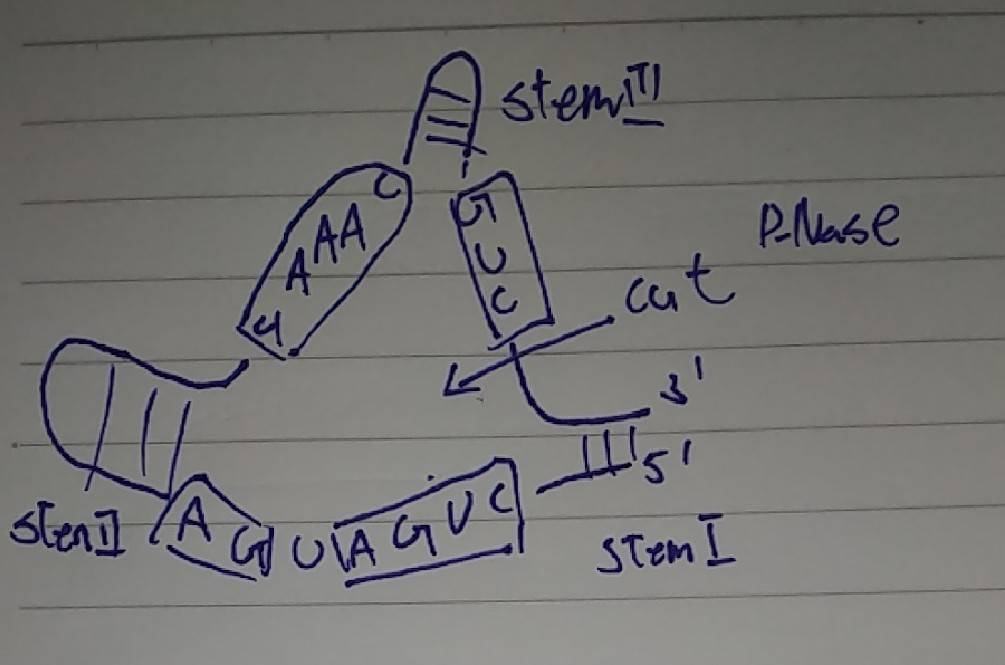 stem III
C
AAA
G
U
C
RNase
cut
3'
5'
stem II
A G U A G U C
stem I